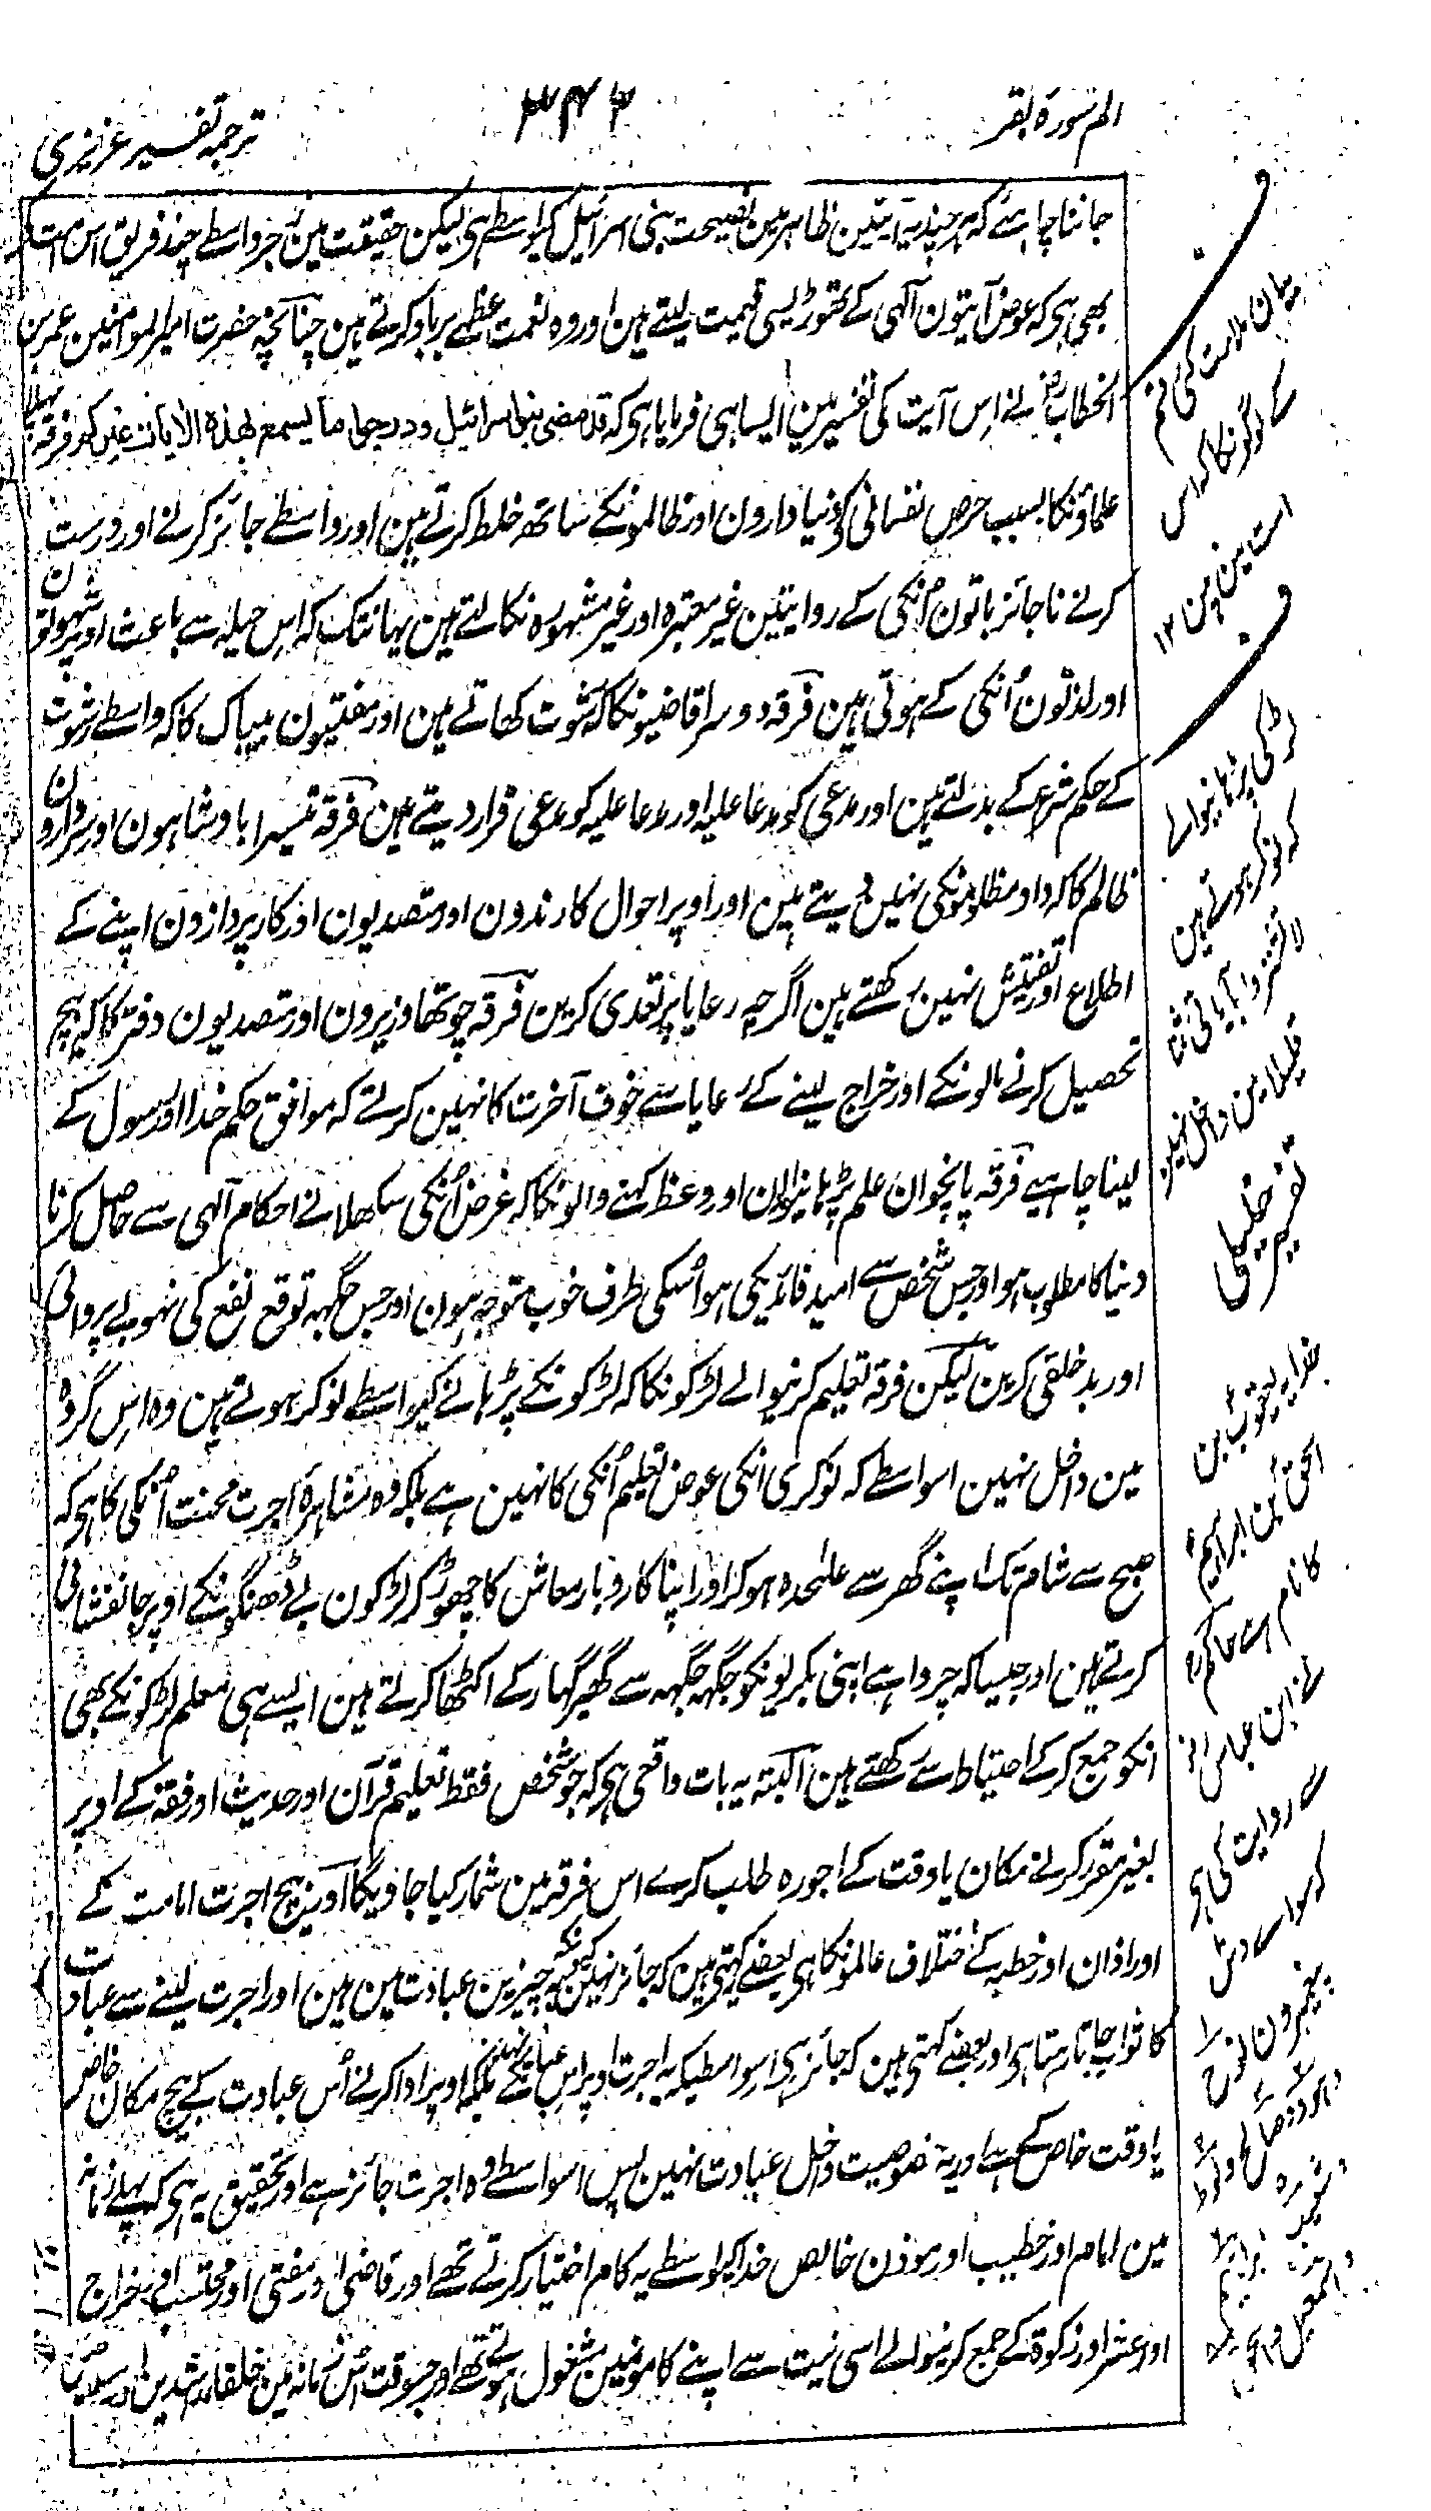 الم سورۃ بقر
۳۴۳
ترجمہ تفسیر عزیزی
جاننا چاہئے کہ ہر چند یہ آیتین ظاہر مین نصیحت بنی اسرائیل کیواسطے ہی لیکن حقیقت مین زجر واسطے چند فریق اس امت کے
بھی ہی کہ عوض آیتون آلٰہی کے تھوڑیسی قیمت لیتے ہین اور وہ نعمت عظمے برباد کرتے ہین چنانچہ حضرت امیر المؤمنین عمر بن
الخطاب رضہ نے اس آیت کی تفسیر مین ایسا ہی فرمایا ہی کہ قد مضی بنو اسرائیل و دد رجا ما یسمع بھذہ الایات غیرکم فرقہ پہلا
علماؤنکا بسبب حرص نفسانی کو دنیا دارون اور ظالمونکے ساتھ خلط کرتے ہین اور واسطے جائز کرنے اور درست
کرنے ناجائز باتون اُنکی کے روایتین غیر معتبرہ اور غیر مشہورہ نکالتے ہین یہانتک کہ اس حیلہ سے باعث اوپر شہوتون
اور لذتون اُنکی کے ہوتی ہین فرقہ دوسرا قاضیونکا کہ رشوت کھاتے ہین اور مفتیون بیباک کا کہ واسطے رشوت
کے حکم شرع کے بدلتے ہین اور مدعی کو مدعا علیہ اور مدعا علیہ کو مدعی قرار دیتے ہین فرقہ تیسرا بادشاہون اور سردارون
ظالم کا کہ داد مظلومونکی نہین دیتے ہین اور اوپر احوال کارندون اور متصدیون اور کارپردازون اپنے کے
اطلاع اور تفتیش نہین رکھتے ہین اگرچہ رعایا پر تعدی کرین فرقہ چوتھا وزیرون اور متصدیون دفتر کا کہ بیچ
تحصیل کرنے مالونکے اور خراج لینے کے رعایا سے خوف آخرت کا نہین کرتے کہ موافق حکم خدا اور رسول کے
لینا چاہیے فرقہ پانچوان علم پڑہانیوالون اور وعظ کہنے والونکا کہ غرض اُنکی سکھلانے احکام آلٰہی سے حاصل کرنا
دنیا کا مطلوب ہو اور جس شخص سے امید فائدیکی ہو اُسکی طرف خوب متوجہ ہون اور جس جگہہ توقع نفع کی نہو بے پروائی
اور بدخلقی کرین لیکن فرقہ تعلیم کرنیوالے لڑکونکا کہ لڑکونکے پڑہانے کیواسطے نوکر ہوتے ہین وہ اس گروہ
مین داخل نہین اسواسطے کہ نوکری انکی عوض تعلیم اُنکی کا نہین ہے بلکہ وہ مشاہرہ اجرت محنت اُنکی کا ہی کہ
صبح سے شام تک اپنے گھر سے علٰحدہ ہو کر اور اپنا کاروبار معاش کا چھوڑ کر لڑکون بے ڈھنگونکے اوپر جانفشانی
کرتے ہین اور جیسا کہ چرواہے اپنی بکریونکو جگہہ جگہہ سے گھیر گہار کے اکٹھا کرتے ہین ایسے ہی معلم لڑکونکے بھی
انکو جمع کر کے احتیاط سے رکھتے ہین البتہ یہ بات واقعی ہی کہ جو شخص فقط تعلیم قرآن اور حدیث اور فقہ کے اوپر
بغیر مقرر کرنے مکان یا وقت کے اجورہ طلب کرے اس فرقہ مین شمار کیا جاویگا اور بیچ اجرت امامت کے
اور اذان اور خطبہ کے اختلاف عالمونکا ہی بعضے کہتی ہین کہ جائز نہین کیونکہ یہ چیزین عبادت مین ہین اور اجرت لینے سے عبادت
کا ثواب جاتا رہتا ہی اور بعضے کہتی ہین کہ جائز ہی اسواسطیکہ یہ اجرت اوپر اس عبادتکے نہین بلکہ اوپر ادا کرنے اُس عبادت کے بیچ مکان خاص
یا وقت خاص کے ہے اور یہ خصوصیت داخل عبادت نہین پس اسواسطے وہ اجرت جائز ہے اور تحقیق یہ ہی کہ پہلے زمانہ
مین امام اور خطیب اور موذن خالص خدا کیواسطے یہ کام اختیار کرتے تھے اور قاضی اور مفتی اور محتسب اور خراج
اور عشر اور زکوۃ کے جمع کرنیوالے اسی نیت سے اپنے کامونمین مشغول ہوتے تھے اور جسوقت اُس زمانہ مین خلفاء راشدین اور سلاطین
ف
بیان ملامت کی قسم
کے لوگونکا کہ اس
امت مین ہین ۱۲
ف
لڑکی پڑہانیوالے
کہ نوکر ہوتے ہین
لا تشتروا بآیاتی ثمنا
قلیلا مین داخل نہین
تفسیر خلیلی
یعقوب بن
اسحق بن ابراہیم
کا نام ہے حاکم رہ
نے ابن عباس رضہ
سے روایت کی ہی
کہ سواے دس
پیغمبرون نوح